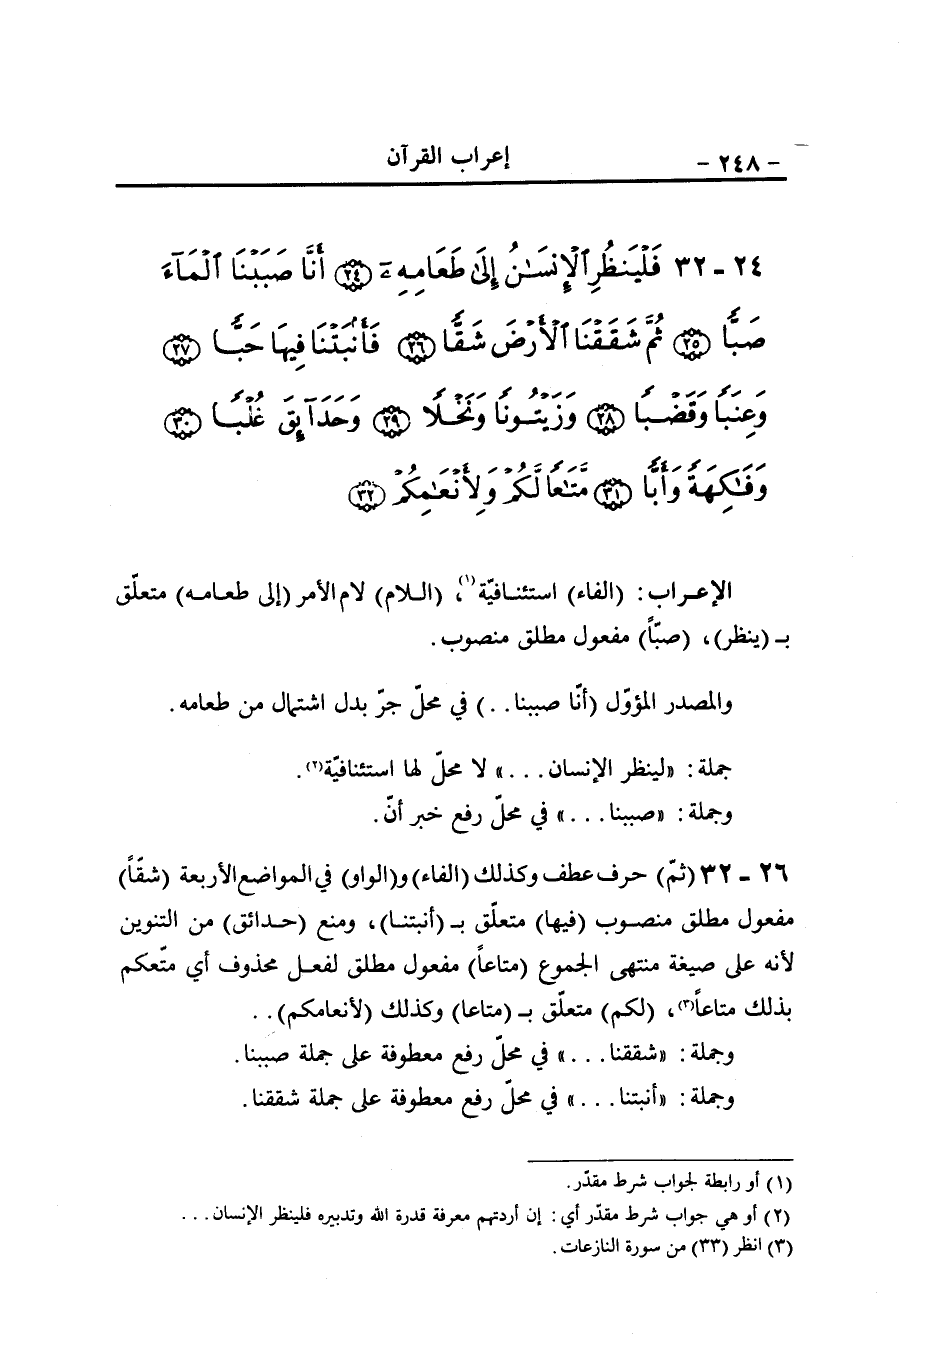 - ٢٤٨ -
إعراب القرآن
٢٤ - ٣٢ فَلْيَنظُرِ ٱلْإِنسَـٰنُ إِلَىٰ طَعَامِهِۦٓ ﴿٢٤﴾ أَنَّا صَبَبْنَا ٱلْمَآءَ
صَبًّا ﴿٢٥﴾ ثُمَّ شَقَقْنَا ٱلْأَرْضَ شَقًّا ﴿٢٦﴾ فَأَنۢبَتْنَا فِيهَا حَبًّا ﴿٢٧﴾
وَعِنَبًا وَقَضْبًا ﴿٢٨﴾ وَزَيْتُونًا وَنَخْلًا ﴿٢٩﴾ وَحَدَآئِقَ غُلْبًا ﴿٣٠﴾
وَفَـٰكِهَةً وَأَبًّا ﴿٣١﴾ مَّتَـٰعًا لَّكُمْ وَلِأَنْعَـٰمِكُمْ ﴿٣٢﴾
الإعراب: (الفاء) استئنافيّة(١)، (اللام) لام الأمر (إلى طعامه) متعلّق
بـ (ينظر)، (صبّاً) مفعول مطلق منصوب.
والمصدر المؤوّل (أنّا صببنا..) في محلّ جرّ بدل اشتمال من طعامه.
جملة: «لينظر الإنسان...» لا محلّ لها استئنافيّة(٢).
وجملة: «صببنا...» في محلّ رفع خبر أنّ.
٢٦ - ٣٢ (ثمّ) حرف عطف وكذلك (الفاء) و(الواو) في المواضع الأربعة (شقّاً)
مفعول مطلق منصوب (فيها) متعلّق بـ (أنبتنا)، ومنع (حدائق) من التنوين
لأنه على صيغة منتهى الجموع (متاعاً) مفعول مطلق لفعل محذوف أي متّعكم
بذلك متاعاً(٣)، (لكم) متعلّق بـ (متاعا) وكذلك (لأنعامكم)..
وجملة: «شققنا...» في محلّ رفع معطوفة على جملة صببنا.
وجملة: «أنبتنا...» في محلّ رفع معطوفة على جملة شققنا.
(١) أو رابطة لجواب شرط مقدّر.
(٢) أو هي جواب شرط مقدّر أي: إن أردتهم معرفة قدرة الله وتدبيره فلينظر الإنسان...
(٣) انظر (٣٣) من سورة النازعات.